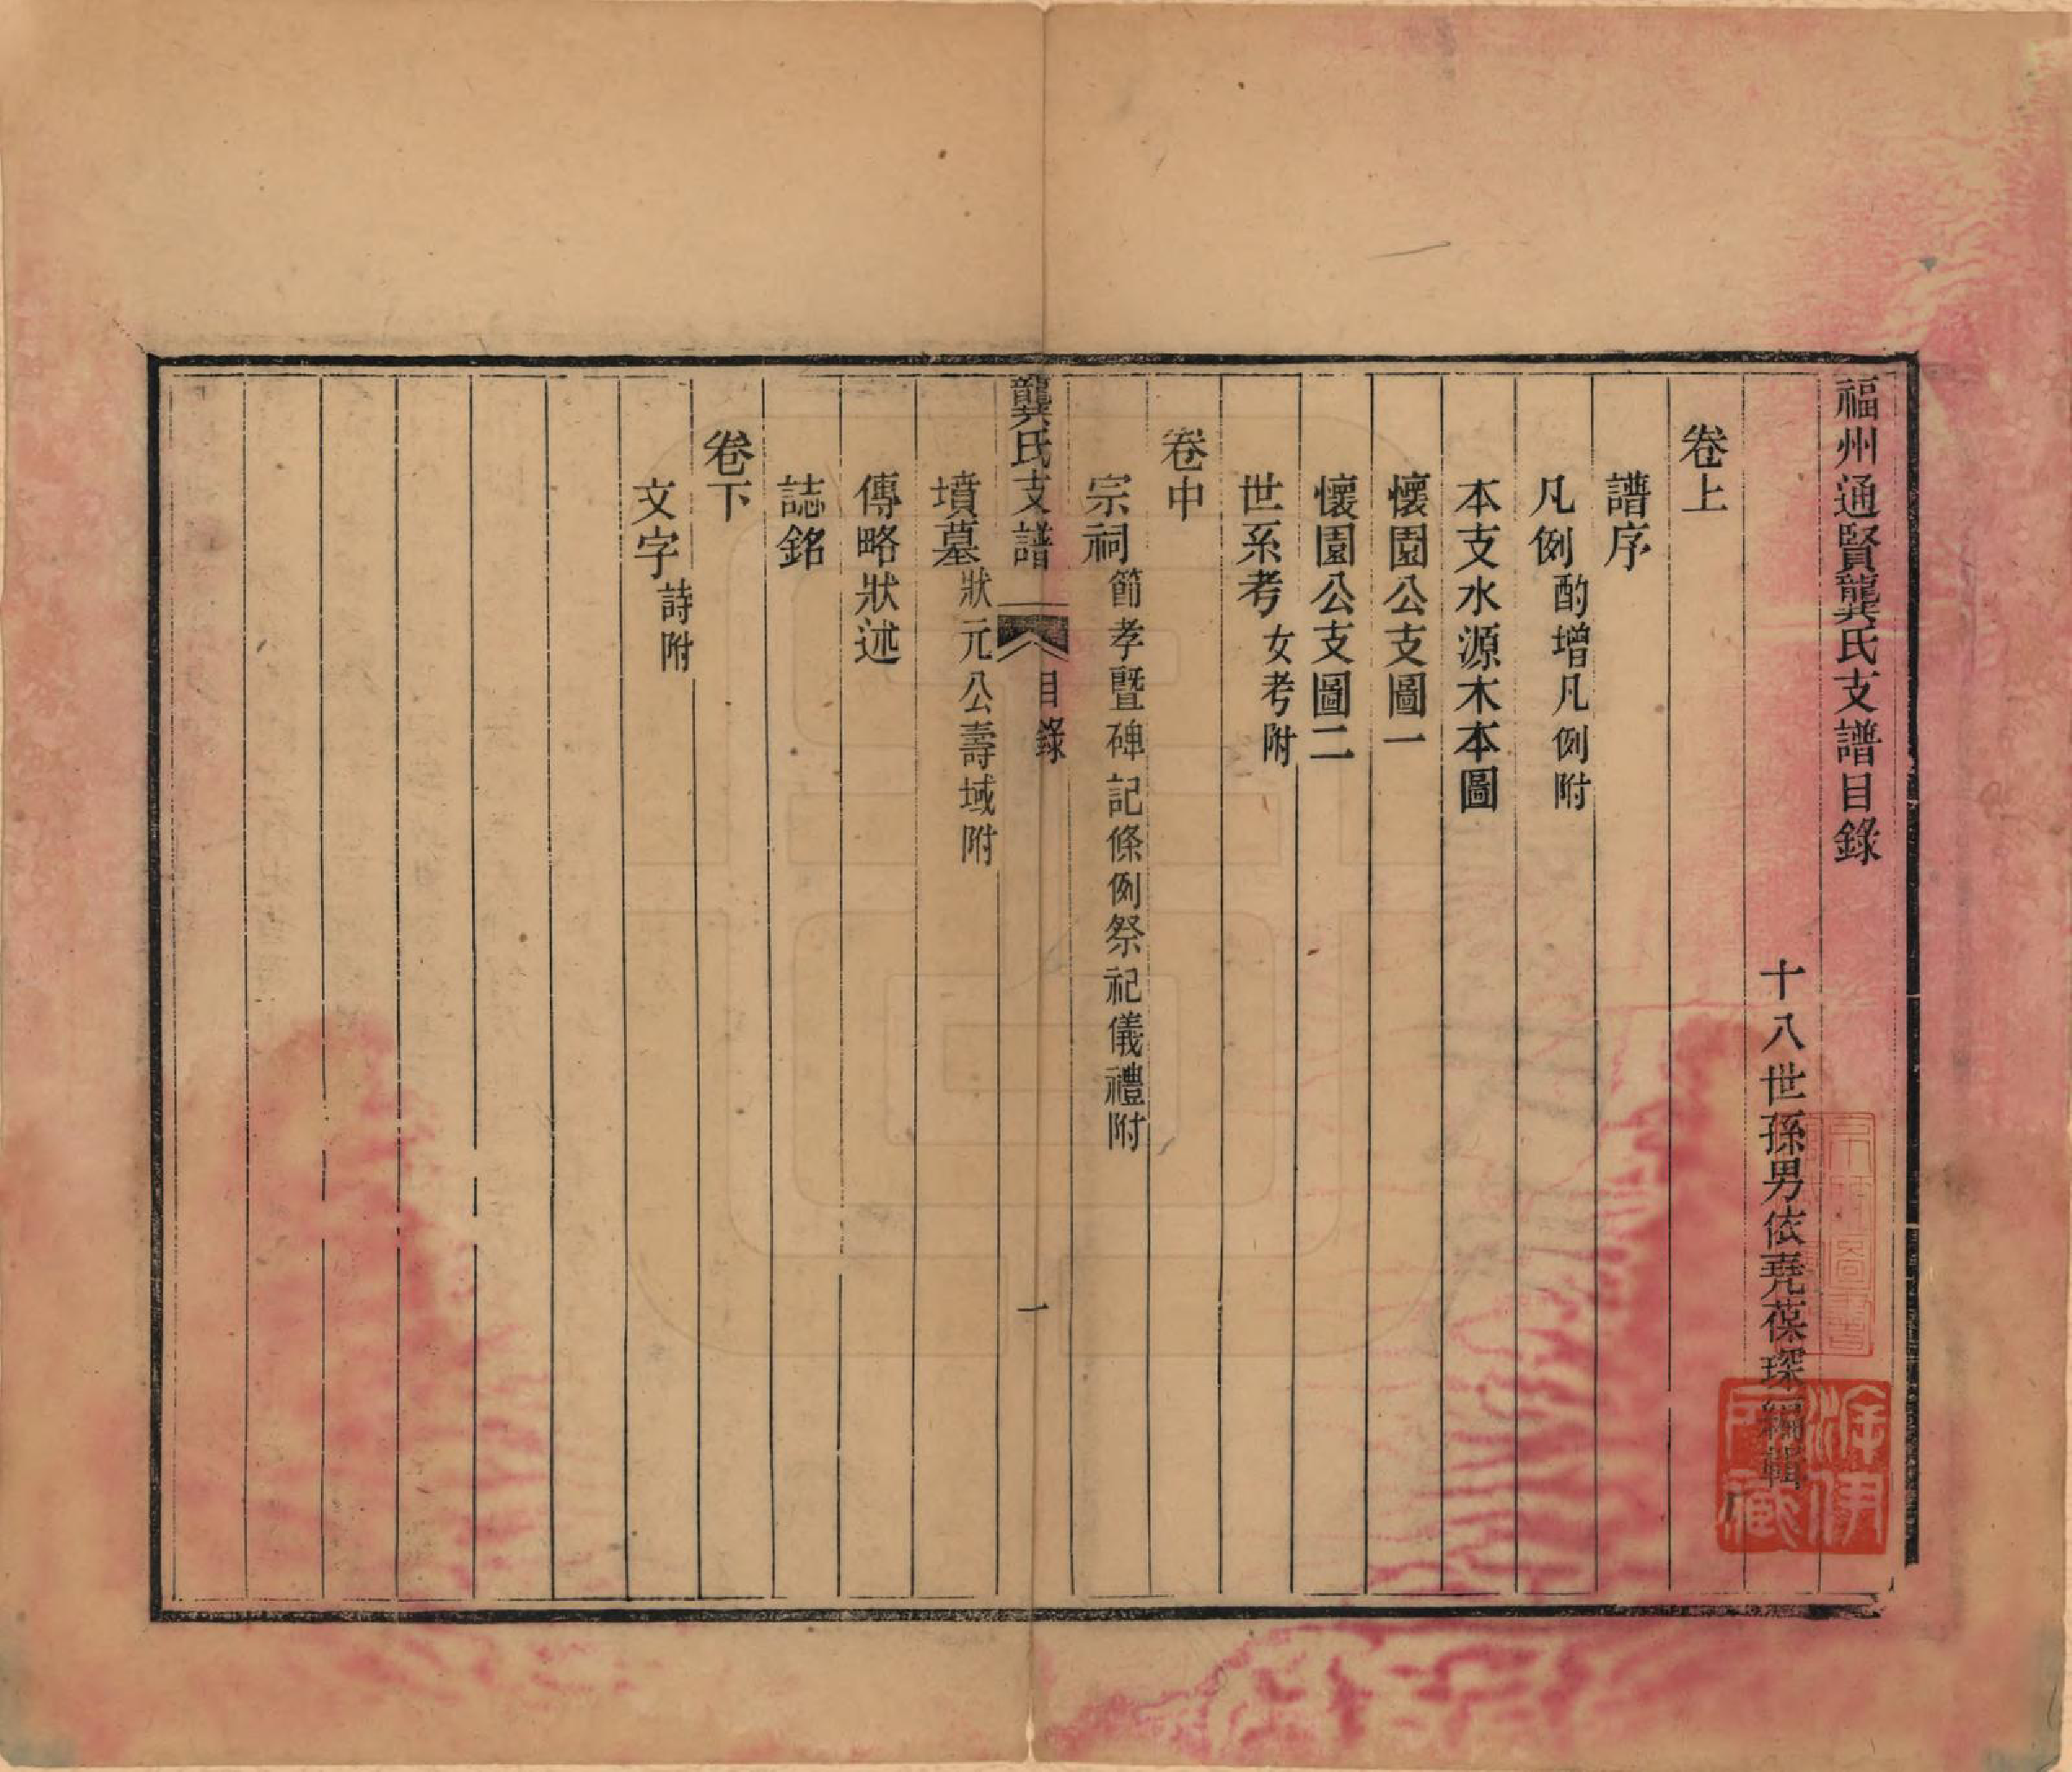 福州通賢龔氏支譜目錄
十八世孫男依堯葆琛編輯
卷上
譜序
凡例酌增凡例附
本支水源木本圖
懷園公支圖一
懷園公支圖二
世系考女考附
卷中
宗祠節孝暨碑記條例祭祀儀禮附
龔氏支譜 目錄 一
墳墓狀元公壽域附
傳略狀述
誌銘
卷下
文字詩附